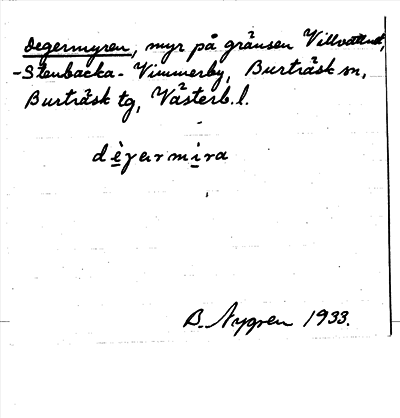 Degermyren, myr på gränsen Villvattnet,
-Stenbacka- Vimmerby, Burträsk sn,
Burträsk tg, Västerb. l.
dègarmira
B. Nygren 1933.